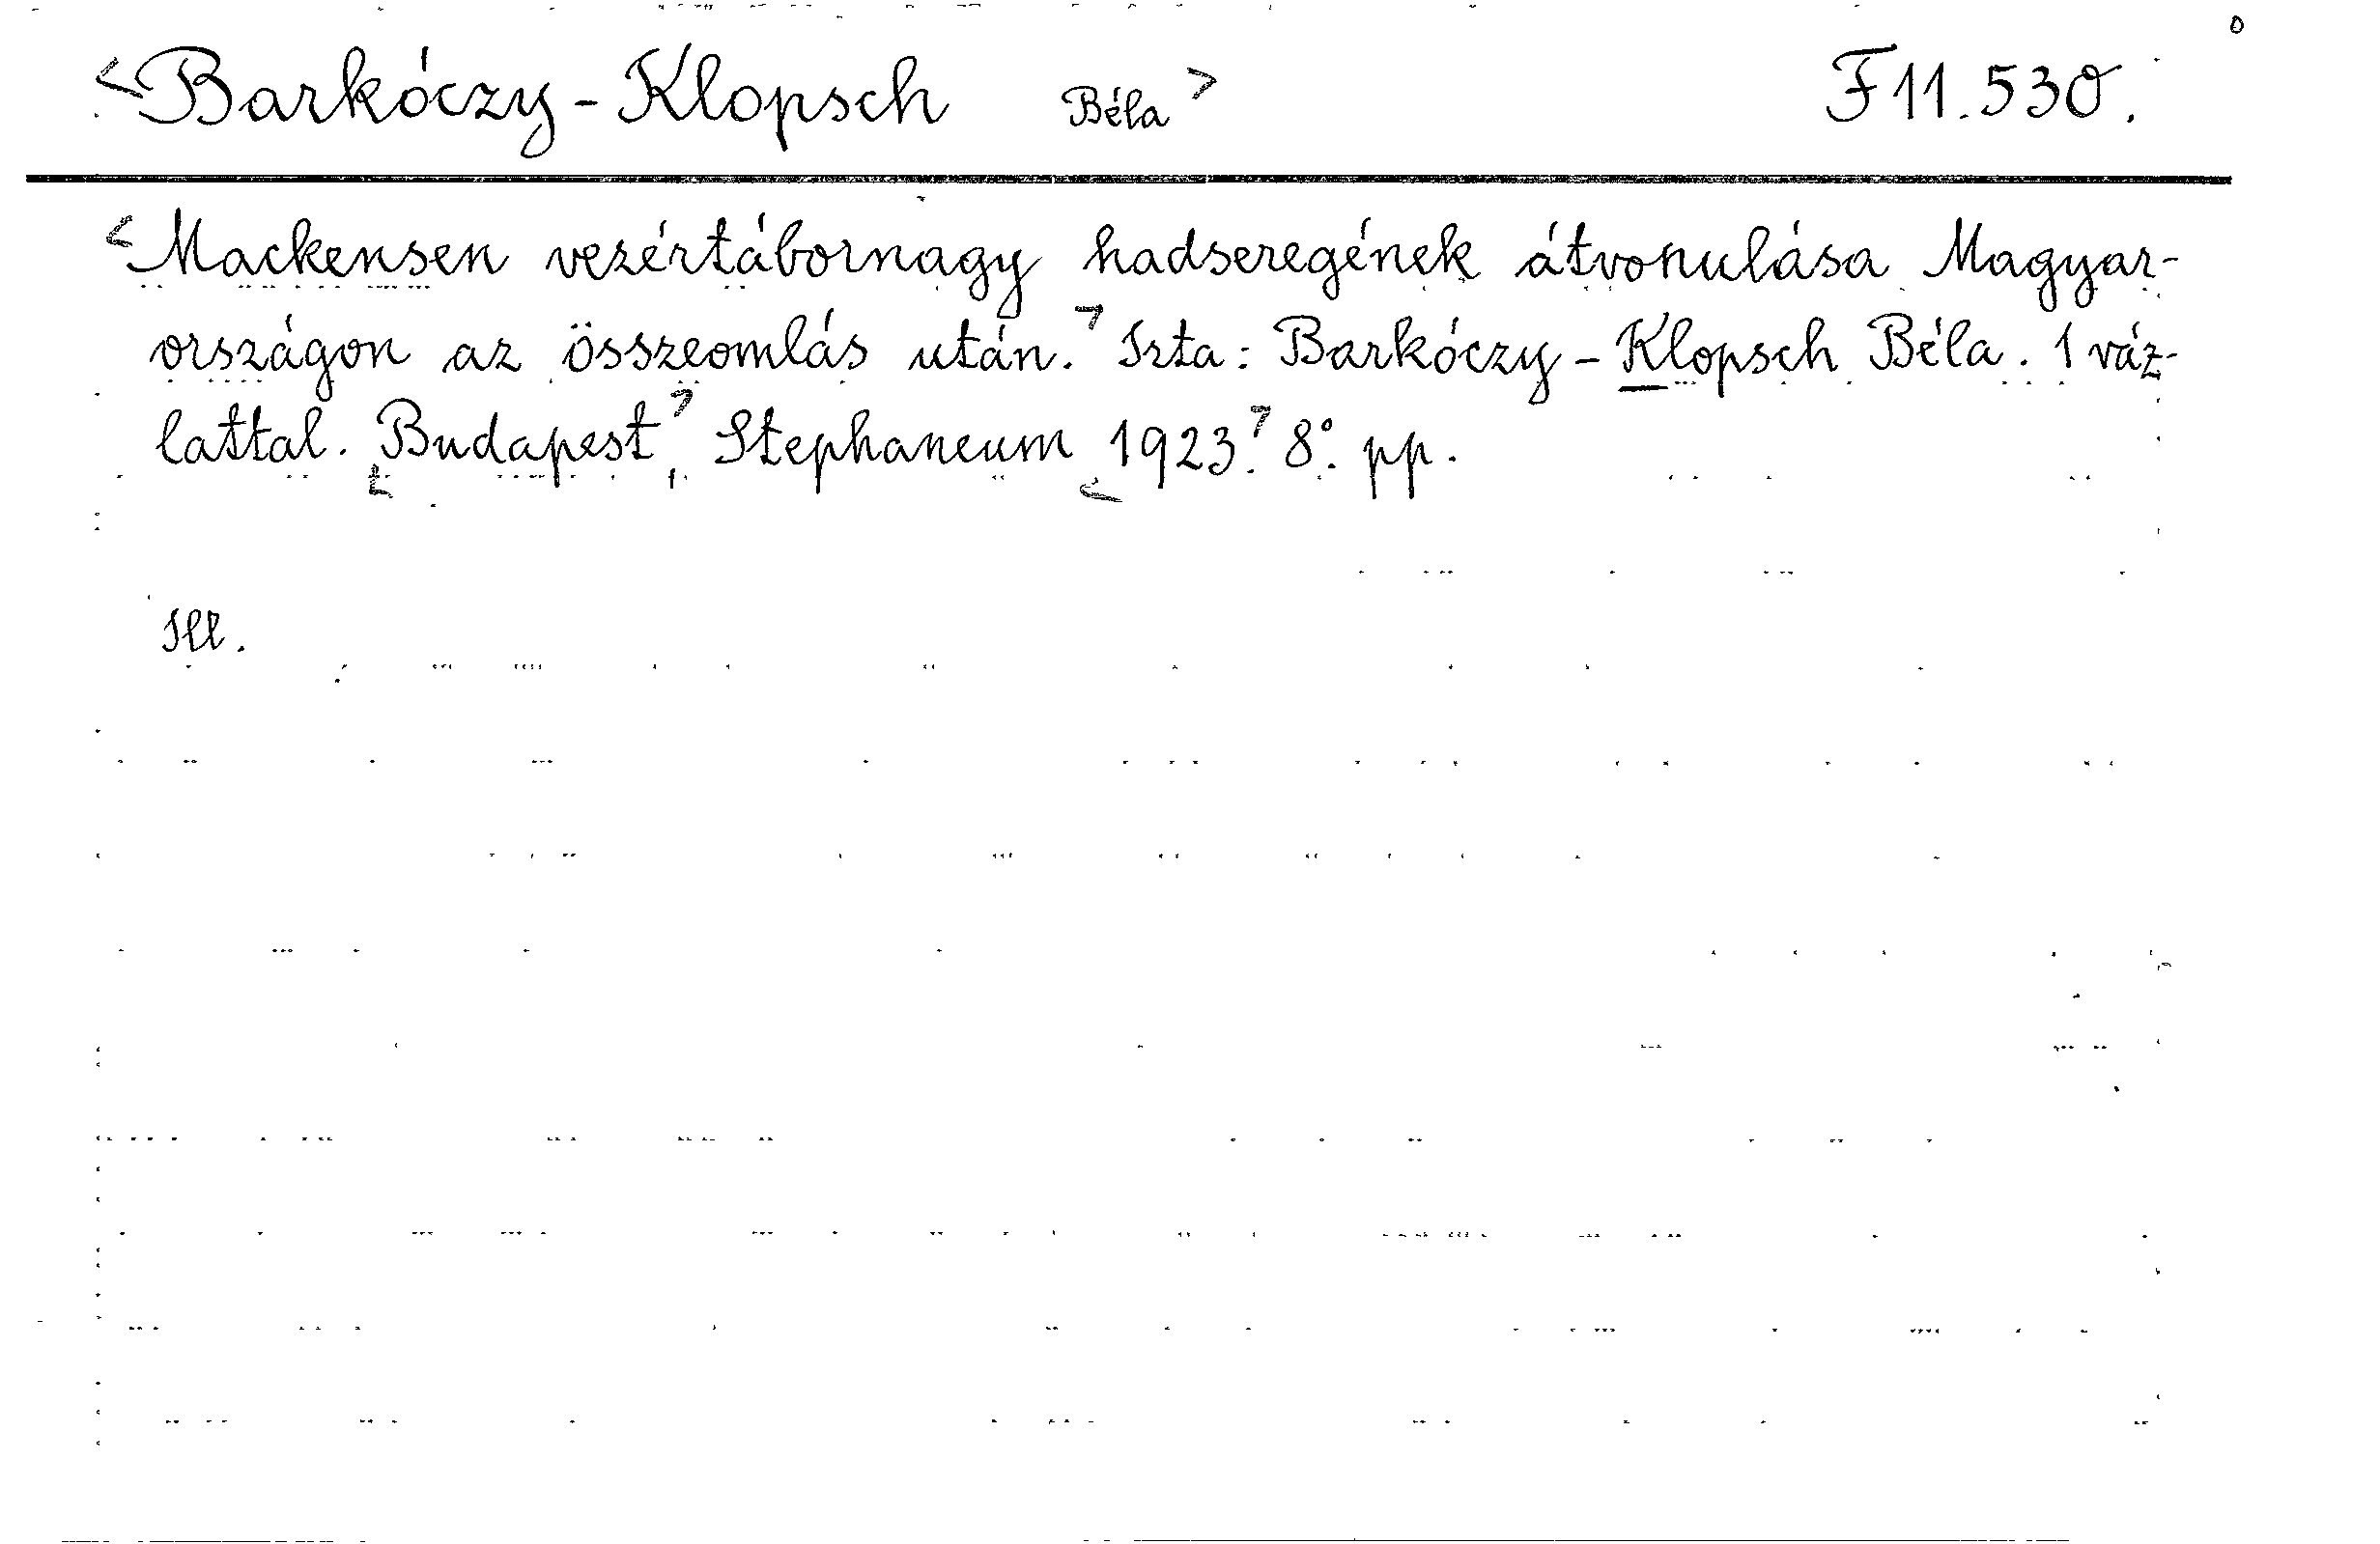 <Barkóczy-Klopsch Béla> F 11.530.
<Mackensen vezértábornagy hadseregének átvonulása Magyar-
országon az összeomlás után.> Irta: Barkóczy-Klopsch Béla. 1 váz-
lattal. <Budapest>, Stephaneum <1923.> 8°. pp.
Ill.